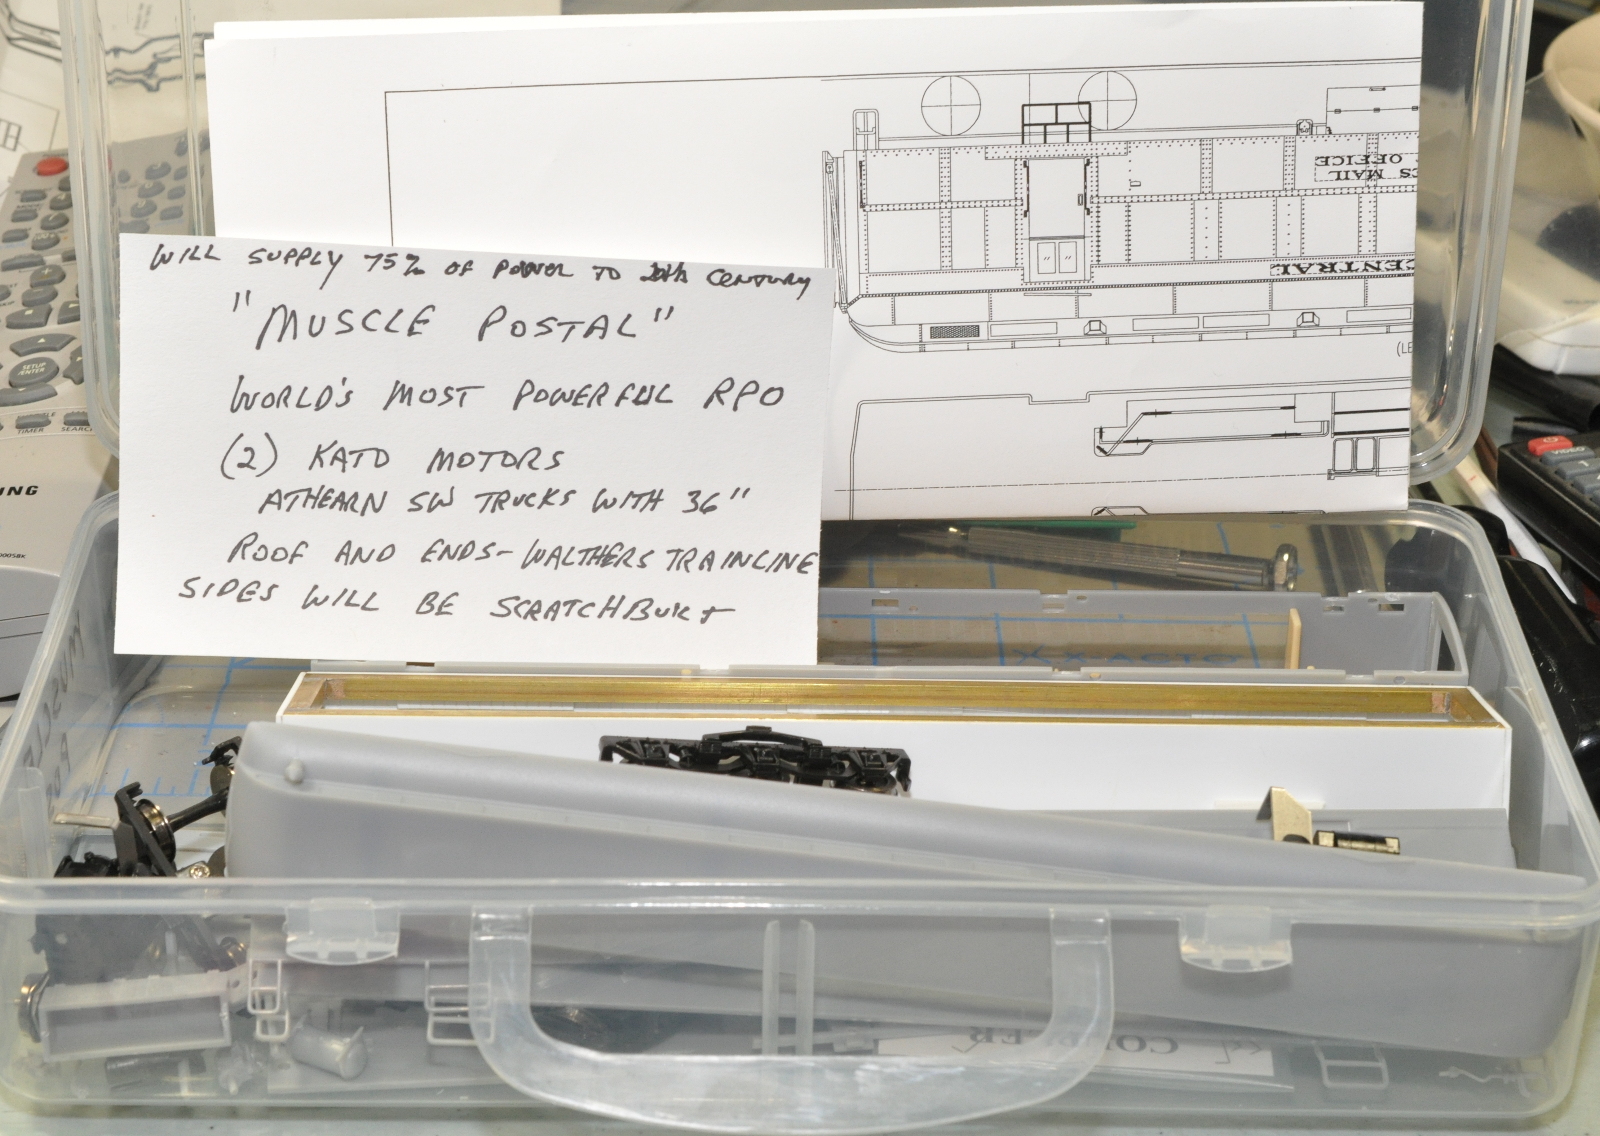 WILL SUPPLY 75% OF POWER TO 20th CENTURY
"MUSCLE POSTAL"
WORLD'S MOST POWERFUL RPO
(2) KATO MOTORS
ATHEARN SW TRUCKS WITH 36"
ROOF AND ENDS - WALTHERS TRAINLINE
SIDES WILL BE SCRATCHBUILT
S MAIL
OFFICE
CENTRAL
(LE
SETUP
ENTER
TIMER
SEARC
NG
VIDEO
1
X-ACTO
MUSCLE
COUPLER